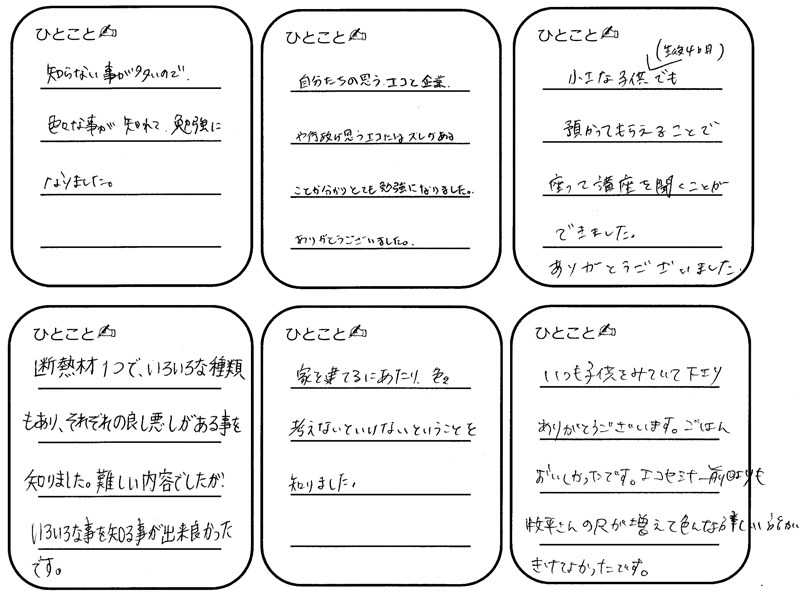 ひとこと
知らない事が多いので、
色々な事が知れて、勉強に
なりました。
ひとこと
自分たちの思うエコと企業
や行政が思うエコにはズレがある
ことが分かりとても勉強になりました。
ありがとうございました。
ひとこと
(生後4ヶ月)
小さな子供でも
預かってもらえることで
座って講座を聞くことが
できました。
ありがとうございました。
ひとこと
断熱材1つで、いろいろな種類
もあり、それぞれの良し悪しがある事を
知りました。難しい内容でしたが
いろいろな事を知る事が出来良かった
です。
ひとこと
家を建てるにあたり、色々
考えないといけないということを
知りました。
ひとこと
いつも子供をみていて下さり
ありがとうございます。ごはん
おいしかったです。エコセミナー前回よりも
牧平さんの尺が増えて色んな詳しい話が
きけてよかったです。